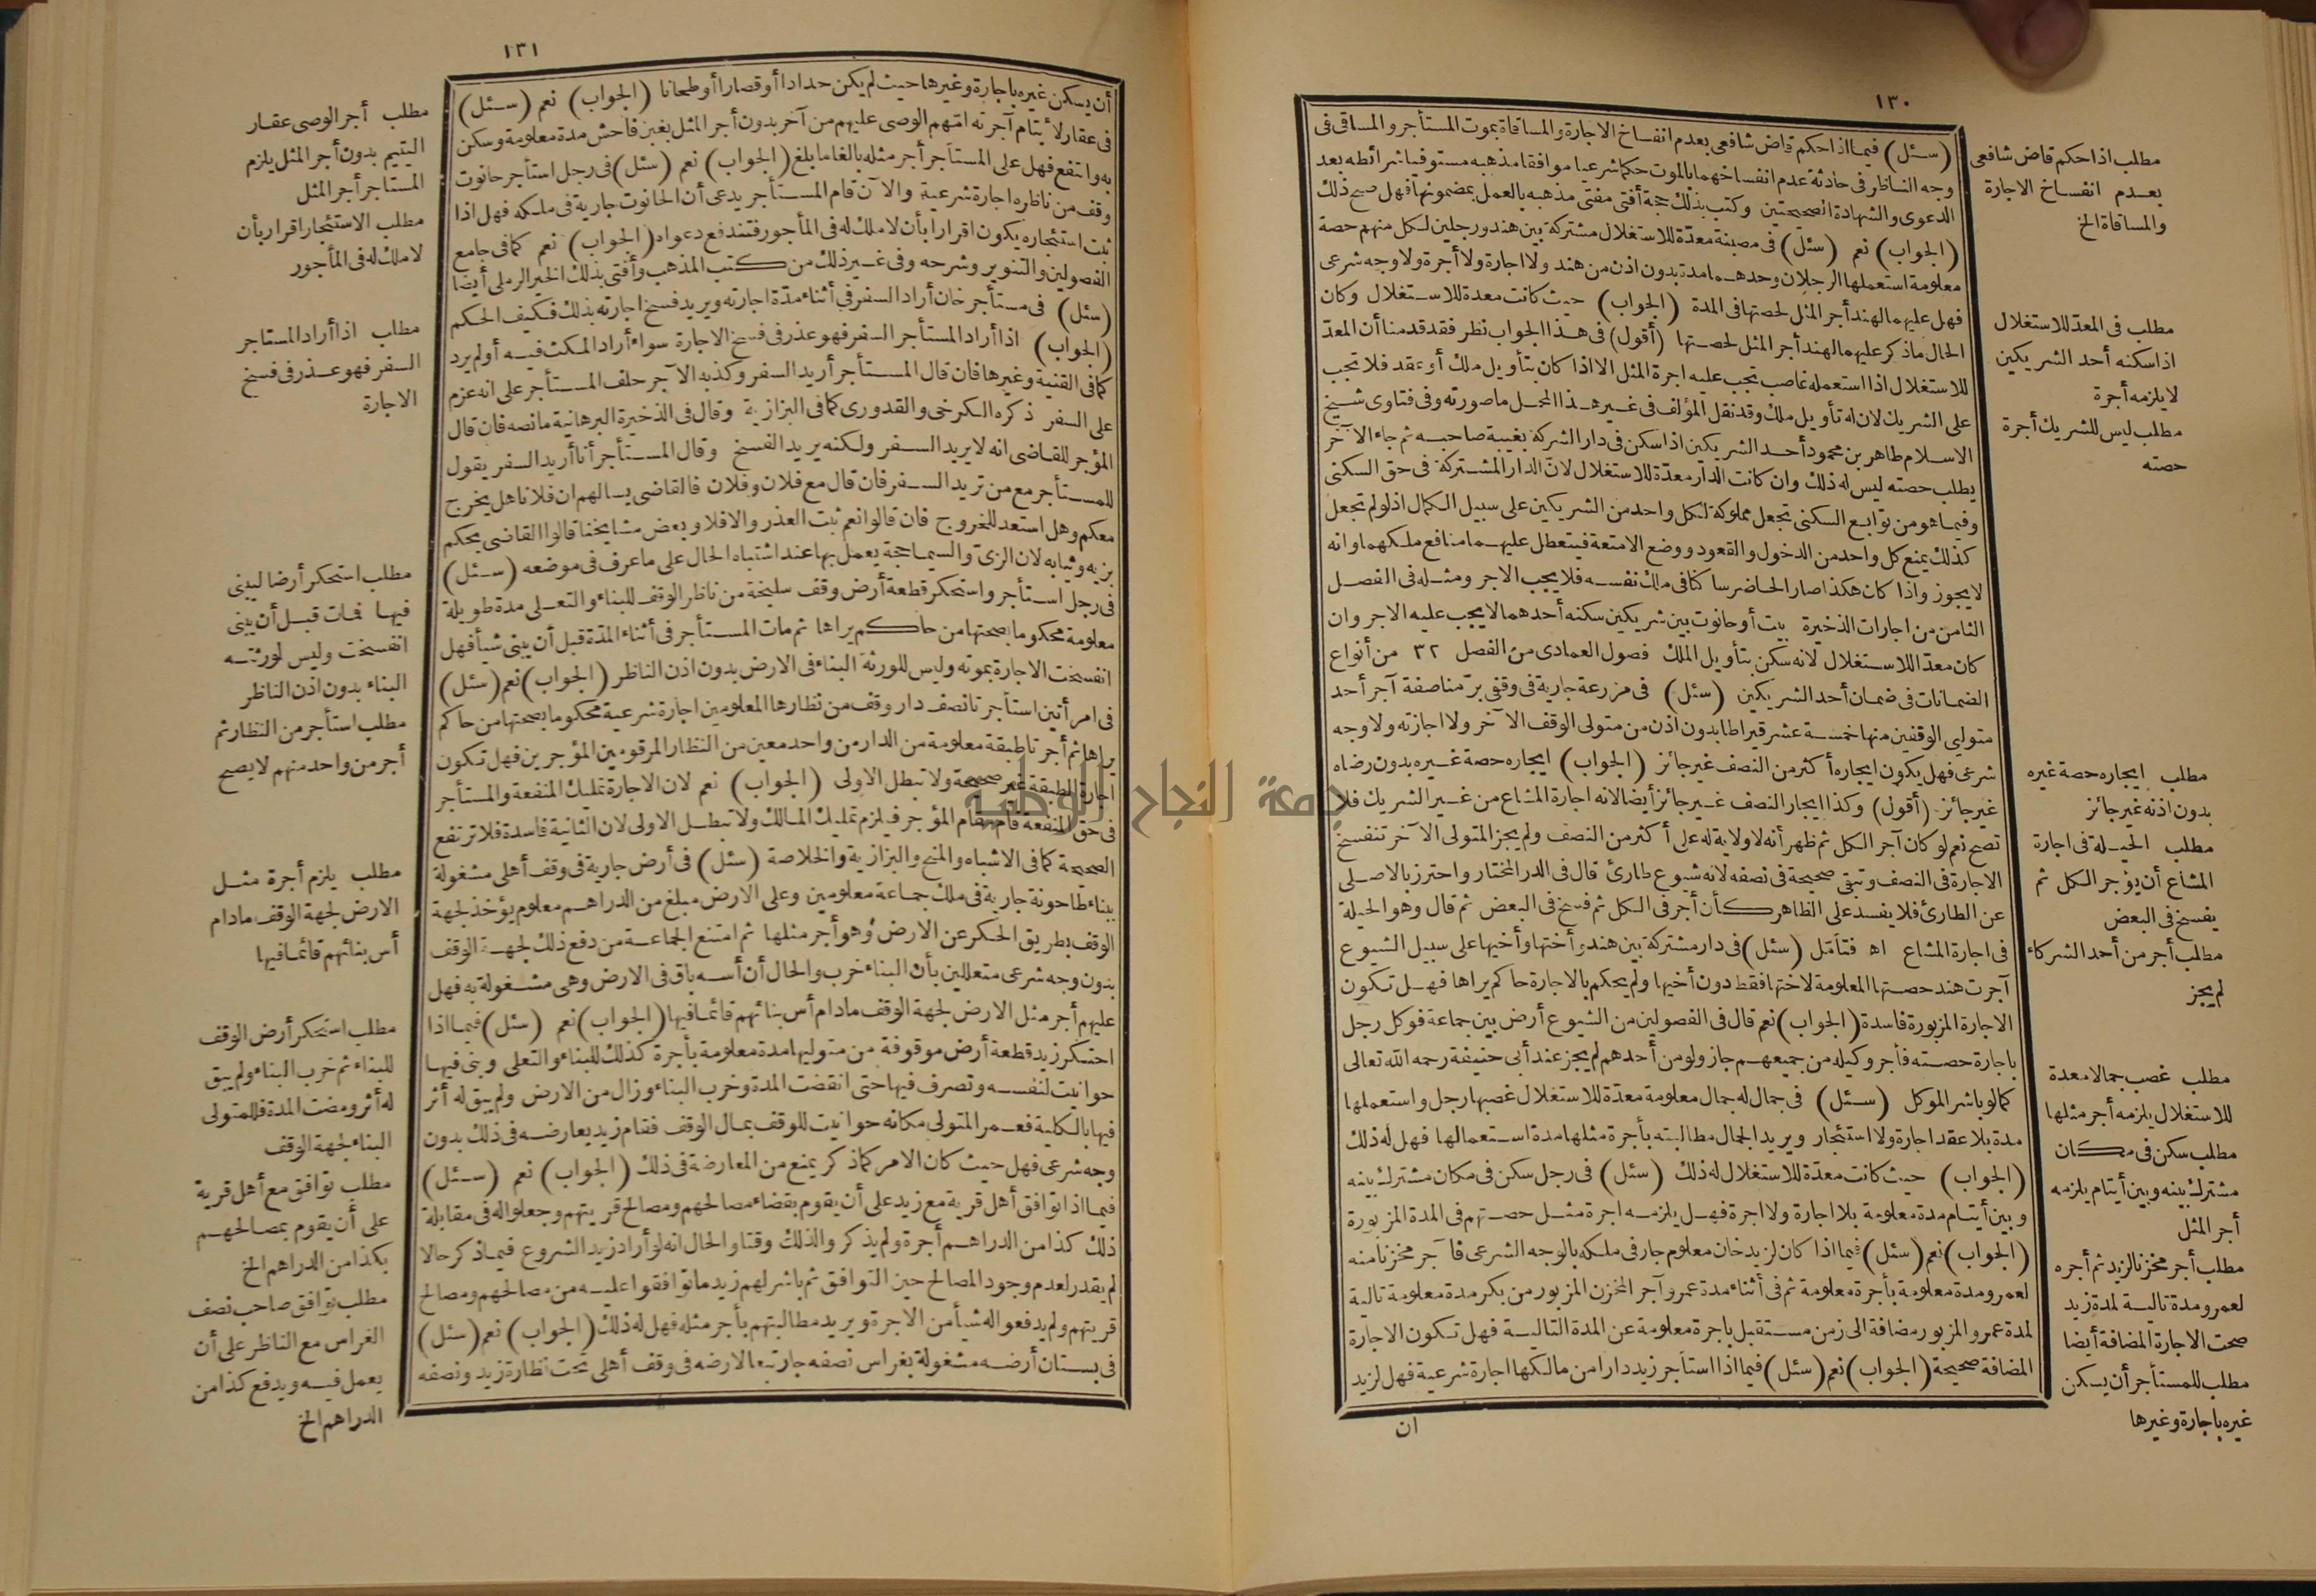 ١٣٠
(سئل) فيما اذا حكم قاض شافعي بعدم انفساخ الاجارة والمساقاة بموت المستأجر والمساقى فى
وجه الناظر فى حادثة عدم انفساخهما بالموت حكما شرعيا موافقا مذهبه مستوفيا شرائطه بعد
الدعوى والشهادة الصحيحتين وكتب بذلك حجة أفتى مفتى مذهبه بالعمل بمضمونها فهل صح ذلك
(الجواب) نعم (سئل) فى مصبنة معدّة للاستغلال مشتركة بين هند ورجلين لكل منهم حصة
معلومة استعملها الرجلان وحدهما مدة بدون اذن من هند ولا اجارة ولا أجرة ولا وجه شرعى
فهل عليهما لهند أجر المثل لحصتها فى المدة (الجواب) حيث كانت معدة للاستغلال وكان
الحال ما ذكر عليهما لهند أجر المثل لحصتها (أقول) فى هذا الجواب نظر فقد قدمنا أن المعدّ
للاستغلال اذا استعمله غاصب تجب عليه اجرة المثل الا اذا كان بتأويل ملك أو عقد فلا تجب
على الشريك لان له تأويل ملك وقد نقل المؤلف فى غير هذا المحل ما صورته وفى فتاوى شيخ
الاسلام طاهر بن محمود أحد الشريكين اذا سكن فى دار الشركة بغيبة صاحبه ثم جاء الآخر
يطلب حصته ليس له ذلك وان كانت الدار معدّة للاستغلال لان الدار المشتركة فى حق السكنى
وفيما هو من توابع السكنى تجعل مملوكة لكل واحد من الشريكين على سبيل الكمال اذ لو لم تجعل
كذلك يمنع كل واحد من الدخول والقعود ووضع الامتعة فيتعطل عليهما منافع ملكهما وانه
لا يجوز واذا كان هكذا صار الحاضر ساكنا فى ملك نفسه فلا يجب الاجر ومثله فى الفصل
الثامن من اجارات الذخيرة بيت أو حانوت بين شريكين سكنه أحدهما لا يجب عليه الاجر وان
كان معدّا للاستغلال لانه سكن بتأويل الملك فصول العمادى من الفصل ٣٢ من أنواع
الضمانات فى ضمان أحد الشريكين (سئل) فى مزرعة جارية فى وقفى برّ مناصفة آجر أحد
متولى الوقفين منها خمسة عشر قيراطا بدون اذن من متولى الوقف الآخر ولا اجازته ولا وجه
شرعى فهل يكون ايجاره أكثر من النصف غير جائز (الجواب) ايجاره حصة غيره بدون رضاه
غير جائز (أقول) وكذا ايجار النصف غير جائز أيضا لانه اجارة المشاع من غير الشريك فلا
تصح نعم لو كان آجر الكل ثم ظهر أنه لا ولاية له على أكثر من النصف ولم يجز المتولى الآخر تنفسخ
الاجارة فى النصف وتبقى صحيحة فى نصفه لانه شيوع طارئ قال فى الدر المختار واحترز بالاصلى
عن الطارئ فلا يفسد على الظاهر كأن أجر فى الكل ثم فسخ فى البعض ثم قال وهو الحيلة
فى اجارة المشاع اه فتأمّل (سئل) فى دار مشتركة بين هند وأختها وأخيها على سبيل الشيوع
آجرت هند حصتها المعلومة لاختها فقط دون أخيها ولم يحكم بالاجارة حاكم يراها فهل تكون
الاجارة المزبورة فاسدة (الجواب) نعم قال فى الفصولين من الشيوع أرض بين جماعة فوكل رجل
باجارة حصته فأجر وكيله من جميعهم جاز ولو من أحدهم لم يجز عند أبى حنيفة رحمه الله تعالى
كما لو باشر الموكل (سئل) فى جمال له جمال معلومة معدّة للاستغلال غصبها رجل واستعملها
مدة بلا عقد اجارة ولا استئجار ويريد الجمال مطالبته بأجرة مثلها مدة استعمالها فهل له ذلك
(الجواب) حيث كانت معدّة للاستغلال له ذلك (سئل) فى رجل سكن فى مكان مشترك بينه
وبين أيتام مدة معلومة بلا اجارة ولا اجرة فهل يلزمه اجرة مثل حصتهم فى المدة المزبورة
(الجواب) نعم (سئل) فيما اذا كان لزيد خان معلوم جار فى ملكه بالوجه الشرعى فآجر مخزنا منه
لعمرو مدة معلومة بأجرة معلومة ثم فى أثناء مدة عمرو آجر المخزن المزبور من بكر مدة معلومة تالية
لمدة عمرو المزبور مضافة الى زمن مستقبل باجرة معلومة عن المدة التالية فهل تكون الاجارة
المضافة صحيحة (الجواب) نعم (سئل) فيما اذا استأجر زيد دارا من مالكها اجارة شرعية فهل لزيد
ان
مطلب اذا حكم قاض شافعى
بعدم انفساخ الاجارة
والمساقاة الخ
مطلب فى المعدّ للاستغلال
اذا سكنه أحد الشريكين
لا يلزمه أجرة
مطلب ليس للشريك أجرة
حصته
مطلب ايجاره حصة غيره
بدون اذنه غير جائز
مطلب الحيلة فى اجارة
المشاع أن يؤجر الكل ثم
يفسخ فى البعض
مطلب أجر من أحد الشركاء
لم يجز
مطلب غصب جمالا معدة
للاستغلال يلزمه أجر مثلها
مطلب سكن فى مكان
مشترك بينه وبين أيتام يلزمه
أجر المثل
مطلب أجر مخزنا لزيد ثم أجره
لعمرو مدة تالية لمدة زيد
صحت الاجارة المضافة أيضا
مطلب للمستأجر أن يسكن
غيره باجارة وغيرها
جامعة النجاح الوطنية
١٣١
أن يسكن غيره باجارة وغيرها حيث لم يكن حدادا أو قصارا أو طحانا (الجواب) نعم (سئل)
فى عقار لأيتام آجرته امّهم الوصى عليهم من آخر بدون أجر المثل بغبن فاحش مدة معلومة وسكن
به وانتفع فهل على المستأجر أجر مثله بالغا ما بلغ (الجواب) نعم (سئل) فى رجل استأجر حانوت
وقف من ناظره اجارة شرعية والآن قام المستأجر يدعى أن الحانوت جارية فى ملكه فهل اذا
ثبت استئجاره يكون اقرارا بأن لا ملك له فى المأجور فتندفع دعواه (الجواب) نعم كما فى جامع
الفصولين والتنوير وشرحه وفى غير ذلك من كتب المذهب وأفتى بذلك الخير الرملى أيضا
(سئل) فى مستأجر خان أراد السفر فى أثناء مدّة اجارته ويريد فسخ اجارته بذلك فكيف الحكم
(الجواب) اذا أراد المستأجر السفر فهو عذر فى فسخ الاجارة سواء أراد المكث فيه أو لم يرد
كما فى القنية وغيرها فان قال المستأجر أريد السفر وكذبه الآجر حلف المستأجر على انه عزم
على السفر ذكره الكرخى والقدورى كما فى البزازية وقال فى الذخيرة البرهانية ما نصه فان قال
المؤجر للقاضى انه لا يريد السفر ولكنه يريد الفسخ وقال المستأجر أنا أريد السفر يقول
للمستأجر مع من تريد السفر فان قال مع فلان وفلان فالقاضى يسالهم ان فلانا هل يخرج
معكم وهل استعد للخروج فان قالوا نعم ثبت العذر والا فلا وبعض مشايخنا قالوا القاضى يحكم
بزيه وثيابه لان الزىّ والسيما حجة يعمل بها عند اشتباه الحال على ما عرف فى موضعه (سئل)
فى رجل استأجر واستحكر قطعة أرض وقف سليخة من ناظر الوقف للبناء والتعلى مدة طويلة
معلومة محكوما بصحتها من حاكم يراها ثم مات المستأجر فى أثناء المدّة قبل أن يبنى شيأ فهل
انفسخت الاجارة بموته وليس للورثة البناء فى الارض بدون اذن الناظر (الجواب) نعم (سئل)
فى امرأتين استأجرتا نصف دار وقف من نظارها المعلومين اجارة شرعية محكوما بصحتها من حاكم
يراها ثم أجرتا طبقة معلومة من الدار من واحد معين من النظار المرقومين المؤجرين فهل تكون
اجارة الطبقة غير صحيحة ولا تبطل الاولى (الجواب) نعم لان الاجارة تمليك المنفعة والمستأجر
فى حق المنفعة قام مقام المؤجر فيلزم تمليك المالك ولا تبطل الاولى لان الثانية فاسدة فلا ترتفع
الصحيحة كما فى الاشباه والمنح والبزازية والخلاصة (سئل) فى أرض جارية فى وقف أهلى مشغولة
ببناء طاحونة جارية فى ملك جماعة معلومين وعلى الارض مبلغ من الدراهم معلوم يؤخذ لجهة
الوقف بطريق الحكر عن الارض وهو أجر مثلها ثم امتنع الجماعة من دفع ذلك لجهة الوقف
بدون وجه شرعى متعللين بأن البناء خرب والحال أن أسه باق فى الارض وهى مشغولة به فهل
عليهم أجر مثل الارض لجهة الوقف مادام أس بنائهم قائما فيها (الجواب) نعم (سئل) فيما اذا
احتكر زيد قطعة أرض موقوفة من متوليها مدة معلومة بأجرة كذلك للبناء والتعلى وبنى فيها
حوانيت لنفسه وتصرف فيها حتى انقضت المدة وخرب البناء وزال من الارض ولم يبق له أثر
فيها بالكلية فعمر المتولى مكانه حوانيت للوقف بمال الوقف فقام زيد يعارضه فى ذلك بدون
وجه شرعى فهل حيث كان الامر كما ذكر يمنع من المعارضة فى ذلك (الجواب) نعم (سئل)
فيما اذا توافق أهل قرية مع زيد على أن يقوم بقضاء مصالحهم ومصالح قريتهم وجعلوا له فى مقابلة
ذلك كذا من الدراهم أجرة ولم يذكر والذلك وقتا والحال انه لو أراد زيد الشروع فيما ذكر حالا
لم يقدر لعدم وجود المصالح حين التوافق ثم باشر لهم زيد ما توافقوا عليه من مصالحهم ومصالح
قريتهم ولم يدفعوا له شيأ من الاجرة ويريد مطالبتهم بأجر مثله فهل له ذلك (الجواب) نعم (سئل)
فى بستان أرضه مشغولة بغراس نصفه جار تبعا لارضه فى وقف أهلى تحت نظارة زيد ونصفه
مطلب أجر الوصى عقار
اليتيم بدون أجر المثل يلزم
المستاجر أجر المثل
مطلب الاستئجار اقرار بأن
لا ملك له فى المأجور
مطلب اذا أراد المستاجر
السفر فهو عذر فى فسخ
الاجارة
مطلب استحكر أرضا ليبنى
فيها فمات قبل أن يبنى
انفسخت وليس لورثته
البناء بدون اذن الناظر
مطلب استأجر من النظار ثم
أجر من واحد منهم لا يصح
مطلب يلزم أجرة مثل
الارض لجهة الوقف مادام
أس بنائهم قائما فيها
مطلب استحكر أرض الوقف
للبناء ثم خرب البناء ولم يبق
له أثر ومضت المدة فللمتولى
البناء لجهة الوقف
مطلب توافق مع أهل قرية
على أن يقوم بمصالحهم
بكذا من الدراهم الخ
مطلب توافق صاحب نصف
الغراس مع الناظر على أن
يعمل فيه ويدفع كذا من
الدراهم الخ